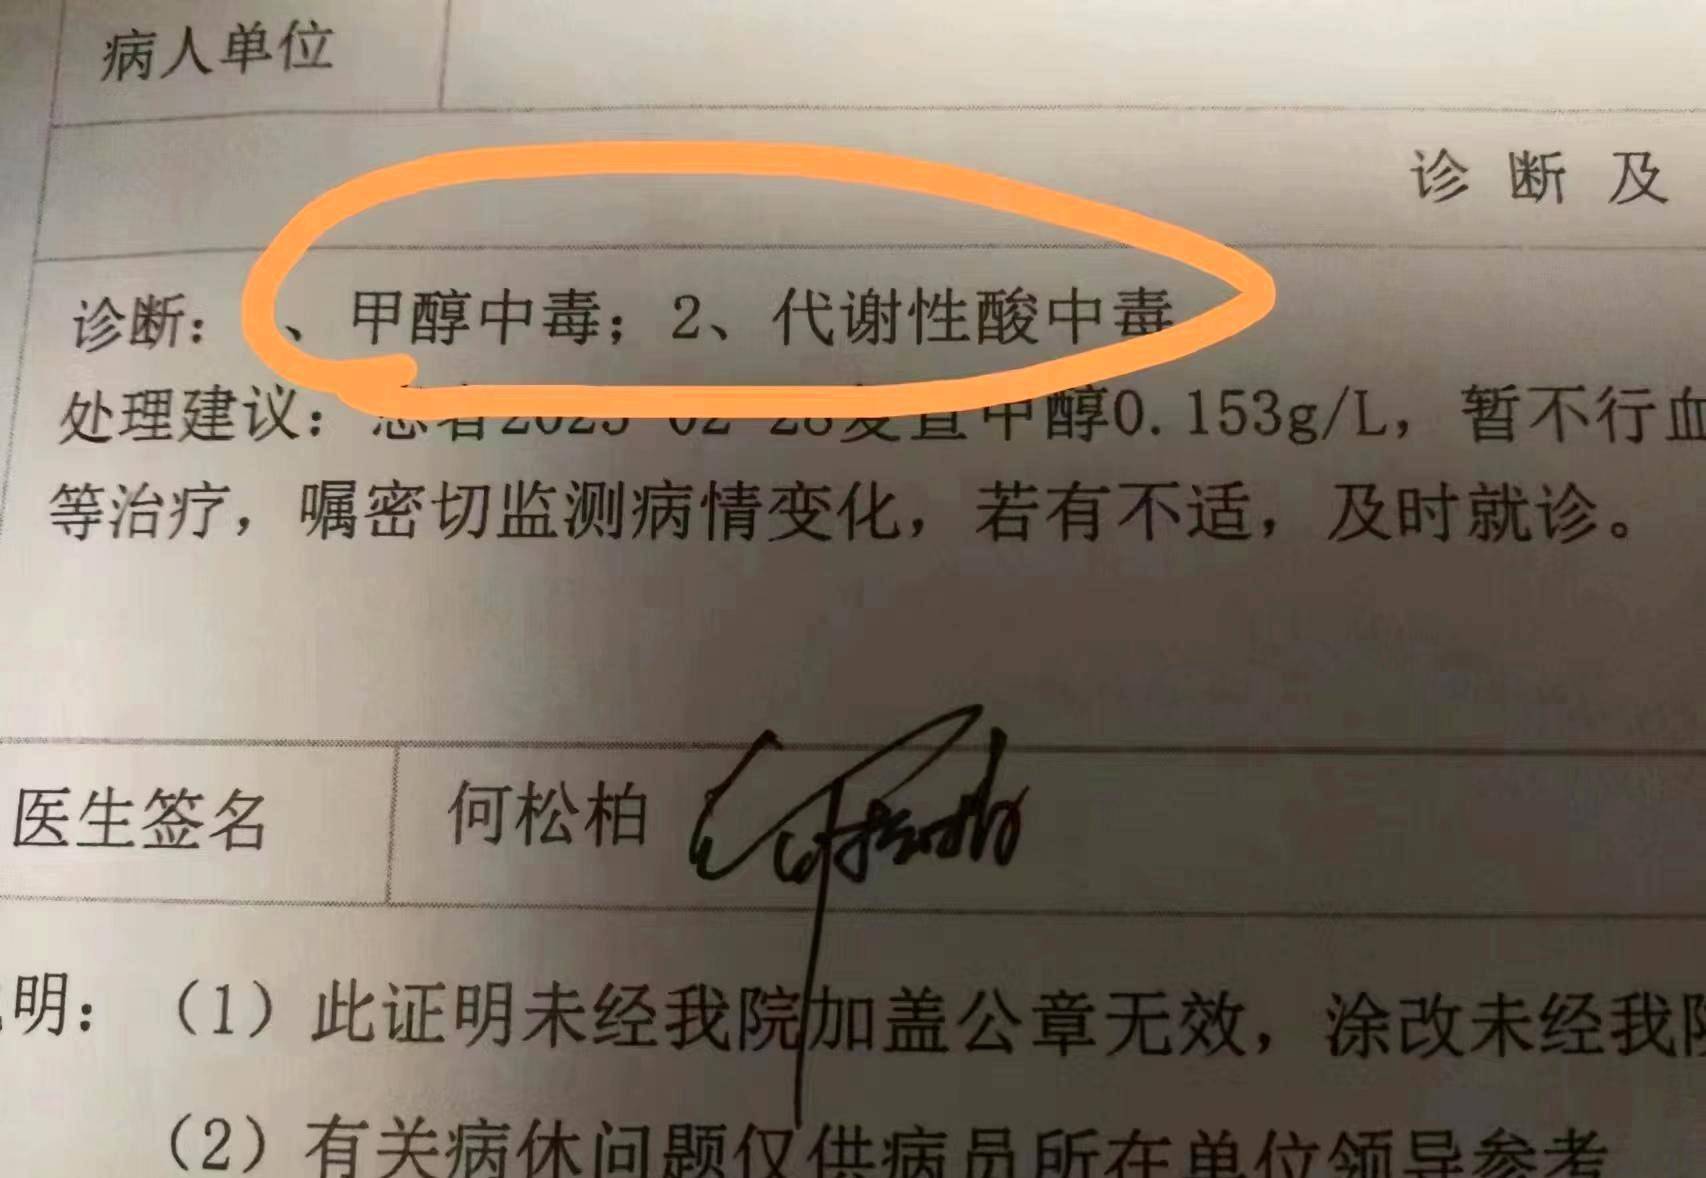 病人单位
诊 断 及
诊断： 、甲醇中毒；2、代谢性酸中毒
处理建议：患者2023-02-28复查甲醇0.153g/L，暂不行血
等治疗，嘱密切监测病情变化，若有不适，及时就诊。
医生签名 何松柏 何松柏
明：（1）此证明未经我院加盖公章无效，涂改未经我院
（2）有关病休问题仅供病员所在单位领导参考